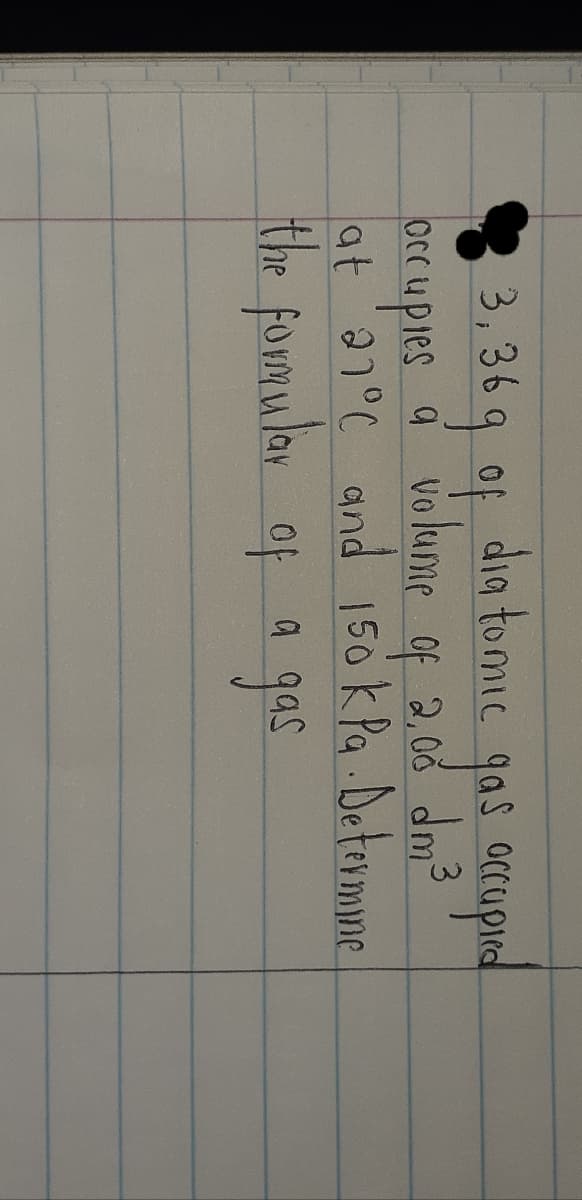 3,36g of diatomic gas occupied
occupies a volume of 2,00 dm³
at 27°C and 150 kPa. Determine
the formular of a gas